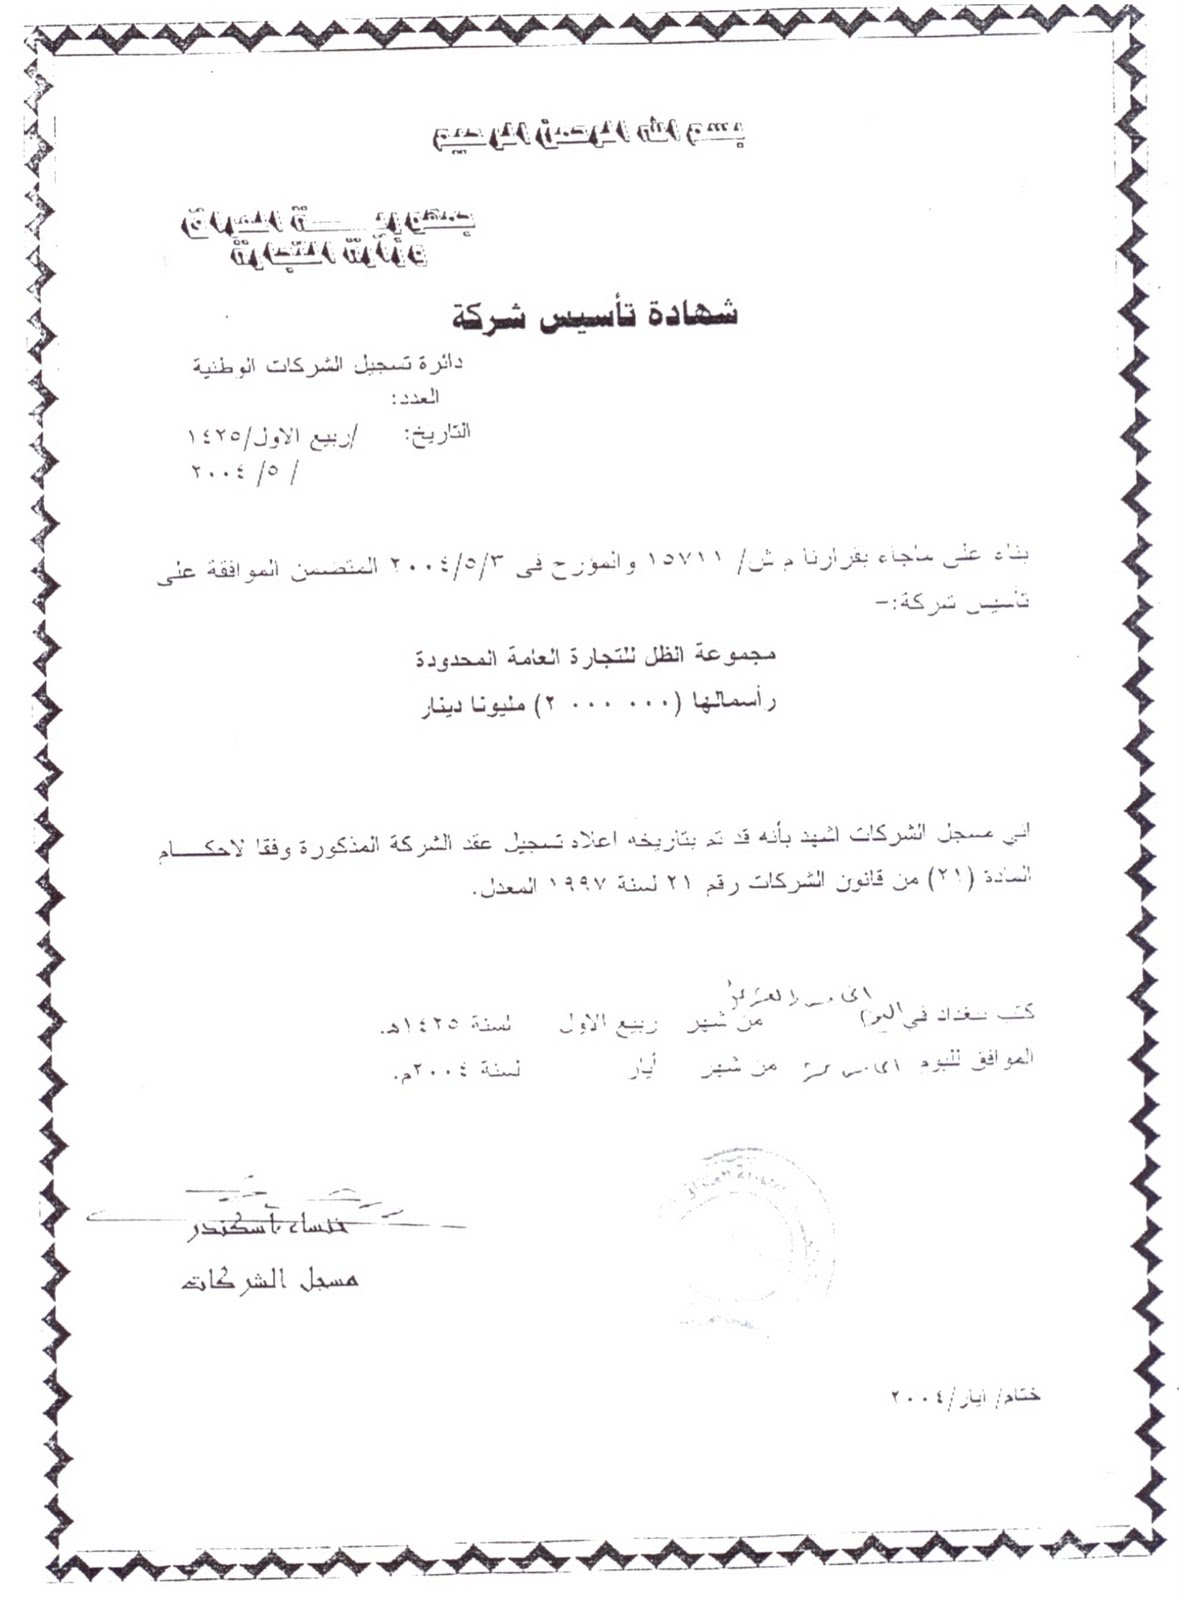 بسم الله الرحمن الرحيم
جمهورية العراق
وزارة التجارة
شهادة تأسيس شركة
دائرة تسجيل الشركات الوطنية
العدد:
التاريخ: /ربيع الاول/١٤٢٥
/ ٥/ ٢٠٠٤
بناء على ماجاء بقرارنا م ش/ ١٥٧١١ والمؤرخ في ٢٠٠٤/٥/٣ المتضمن الموافقة على
تأسيس شركة:-
مجموعة الظل للتجارة العامة المحدودة
رأسمالها (٢ ٠٠٠ ٠٠٠) مليونا دينار
اني مسجل الشركات اشهد بأنه قد تم بتاريخه اعلاه تسجيل عقد الشركة المذكورة وفقا لاحكـــام
المادة (٢١) من قانون الشركات رقم ٢١ لسنة ١٩٩٧ المعدل.
كتب ببغداد في اليوم من شهر ربيع الاول لسنة ١٤٢٥هـ.
الموافق لليوم من شهر أيار لسنة ٢٠٠٤م.
اسكندر
مسجل الشركات
ختام/ ايار/٢٠٠٤